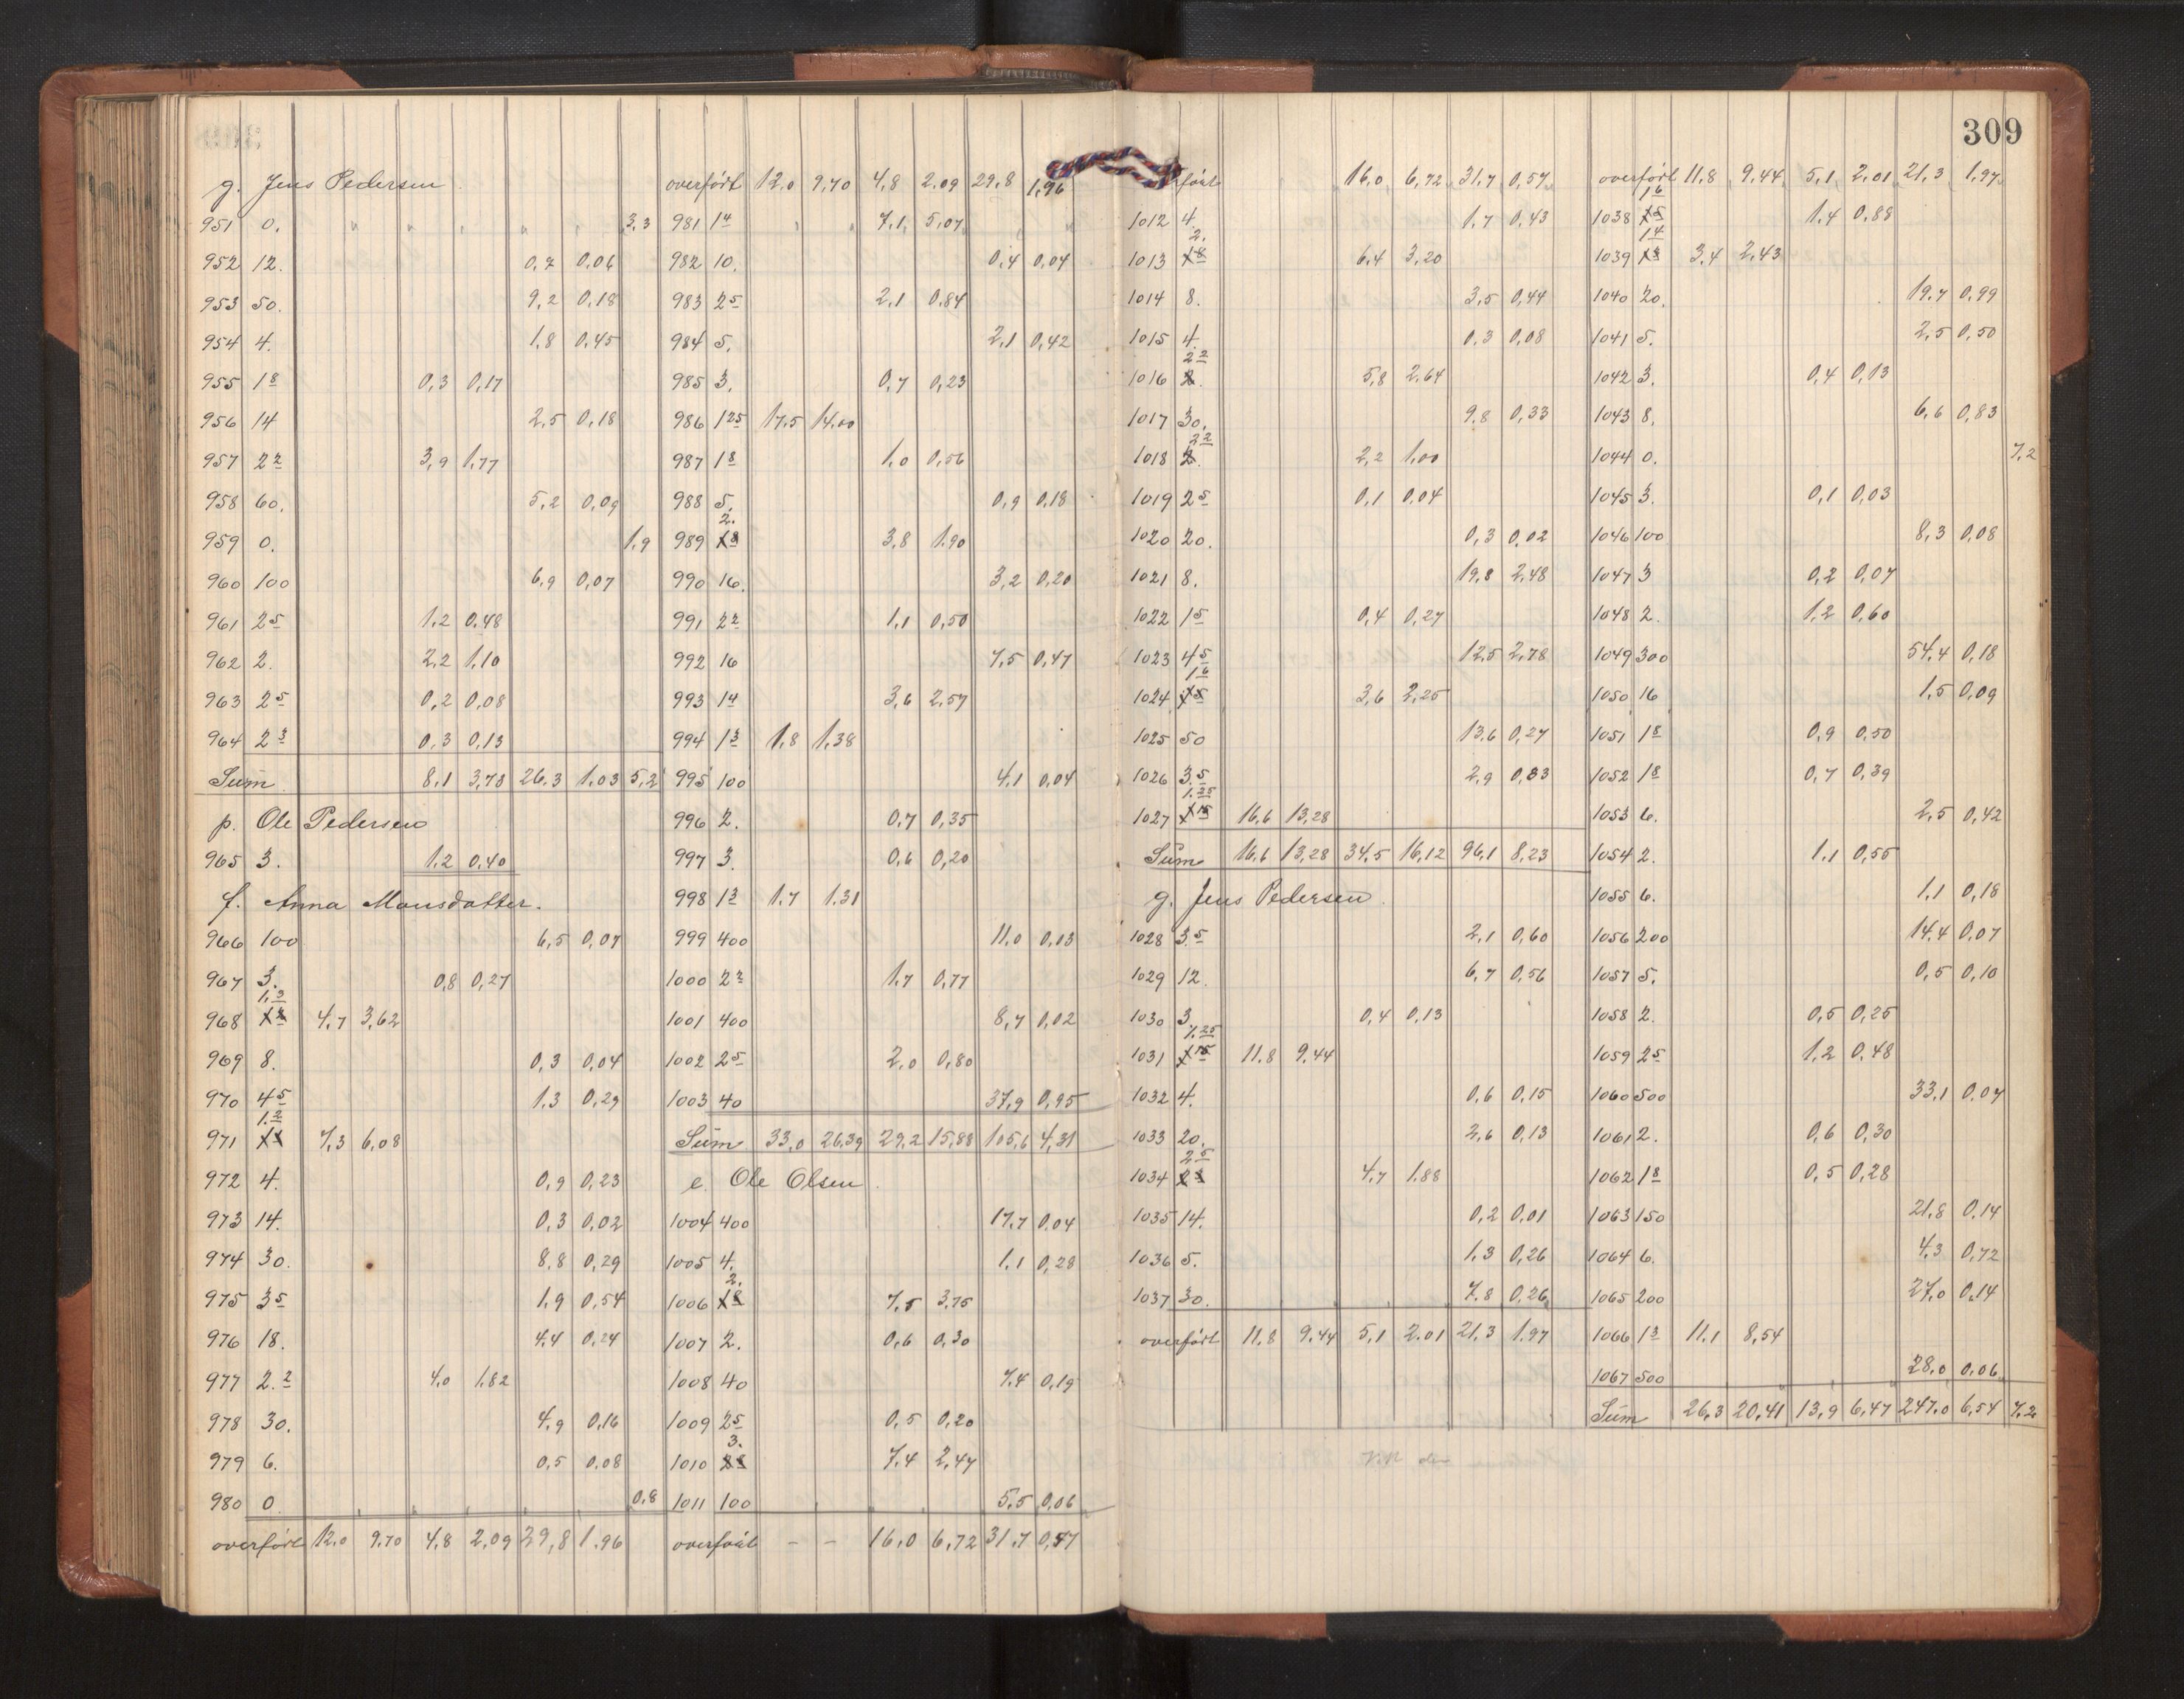 g. Jens Pedersen
951 0. " " " " " " 3,3
952 12. 0,7 0,06
953 50. 9,2 0,18
954 4. 1,8 0,45
955 1 8 0,3 0,17
956 14 2,5 0,18
957 2 2 3,9 1,77
958 60. 5,2 0,09
959 0. 1,9
960 100 6,9 0,07
961 2 5 1,2 0,48
962 2. 2,2 1,10
963 2 5 0,2 0,08
964 2 3 0,3 0,13
Sum 8,1 3,73 26,3 1,03 5,2
p. Ole Pedersen
965 3. 1,2 0,40
f. Anna Monsdatter.
966 100 6,5 0,07
967 3. 0,8 0,27
968 1,3 4,7 3,62
969 8. 0,3 0,04
970 4 5 1,3 0,29
971 1,2 7,3 6,08
972 4. 0,9 0,23
973 14. 0,3 0,02
974 30. 8,8 0,29
975 3 5 1,9 0,54
976 18. 4,4 0,24
977 2. 2 4,0 1,82
978 30. 4,9 0,16
979 6. 0,5 0,08
980 0 0,8
overført 12,0 9,70 4,8 2,09 29,8 1,96
overført 12,0 9,70 4,8 2,09 29,8 1,96
981 1 4 7,1 5,07
982 10. 0,4 0,04
983 2 5 2,1 0,84
984 5. 2,1 0,42
985 3. 0,7 0,23
986 1 25 17,5 14,00
987 1 8 1,0 0,56
988 5. 0,9 0,18
989 2. 3,8 1,90
990 16. 3,2 0,20
991 2 2 1,1 0,50
992 16 7,5 0,47
993 1 4 3,6 2,57
994 1 3 1,8 1,38
995 100 4,1 0,04
996 2. 0,7 0,35
997 3. 0,6 0,20
998 1 3 1,7 1,31
999 400 11,0 0,03
1000 2 2 1,7 0,77
1001 400 8,7 0,02
1002 2 5 2,0 0,80
1003 40 37,9 0,95
Sum 33,0 26,39 29,2 15,88 105,6 4,31
e. Ole Olsen
1004 400 17,7 0,04
1005 4. 1,1 0,28
1006 2. 7,5 3,75
1007 2. 0,6 0,30
1008 40 7,4 0,19
1009 2 5 0,5 0,20
1010 3. 7,4 2,47
1011 100 5,5 0,06
overført - - 16,0 6,72 31,7 0,57
ført 16,0 6,72 31,7 0,57
1012 4. 1,7 0,43
1013 2. 6,4 3,20
1014 8. 3,5 0,44
1015 4. 0,3 0,08
1016 2 2 5,8 2,64
1017 30. 9,8 0,33
1018 2 2 2,2 1,00
1019 2 5 0,1 0,04
1020 20. 0,3 0,02
1021 8. 19,8 2,48
1022 1 5 0,4 0,27
1023 4 5 12,5 2,78
1024 1 6 3,6 2,25
1025 50 13,6 0,27
1026 3 5 2,9 0,83
1027 1,25 16,6 13,28
Sum 16,6 13,28 34,5 16,12 96,1 8,23
g. Jens Pedersen
1028 3 5 2,1 0,60
1029 12. 6,7 0,56
1030 3. 0,4 0,13
1031 1,25 11,8 9,44
1032 4. 0,6 0,15
1033 20. 2,6 0,13
1034 2 5 4,7 1,88
1035 14. 0,2 0,01
1036 5. 1,3 0,26
1037 30. 7,8 0,26
overført 11,8 9,44 5,1 2,01 21,3 1,97
309
overført 11,8 9,44 5,1 2,01 21,3 1,97
1038 1 6 1,4 0,88
1039 1 4 3,4 2,43
1040 20. 19,7 0,99
1041 5. 2,5 0,50
1042 3. 0,4 0,13
1043 8. 6,6 0,83
1044 0. 7,2
1045 3. 0,1 0,03
1046 100 8,3 0,08
1047 3 0,2 0,07
1048 2. 1,2 0,60
1049 300 54,4 0,18
1050 16 1,5 0,09
1051 1 8 0,9 0,50
1052 1 8 0,7 0,39
1053 6. 2,5 0,42
1054 2. 1,1 0,55
1055 6. 1,1 0,18
1056 200 14,4 0,07
1057 5. 0,5 0,10
1058 2. 0,5 0,25
1059 2 5 1,2 0,48
1060 500 33,1 0,07
1061 2. 0,6 0,30
1062 1 8 0,5 0,28
1063 150 21,8 0,14
1064 6. 4,3 0,72
1065 200 27,0 0,14
1066 1 3 11,1 8,54
1067 500 28,0 0,06
Sum 26,3 20,41 13,9 6,47 247,0 6,54 7,2